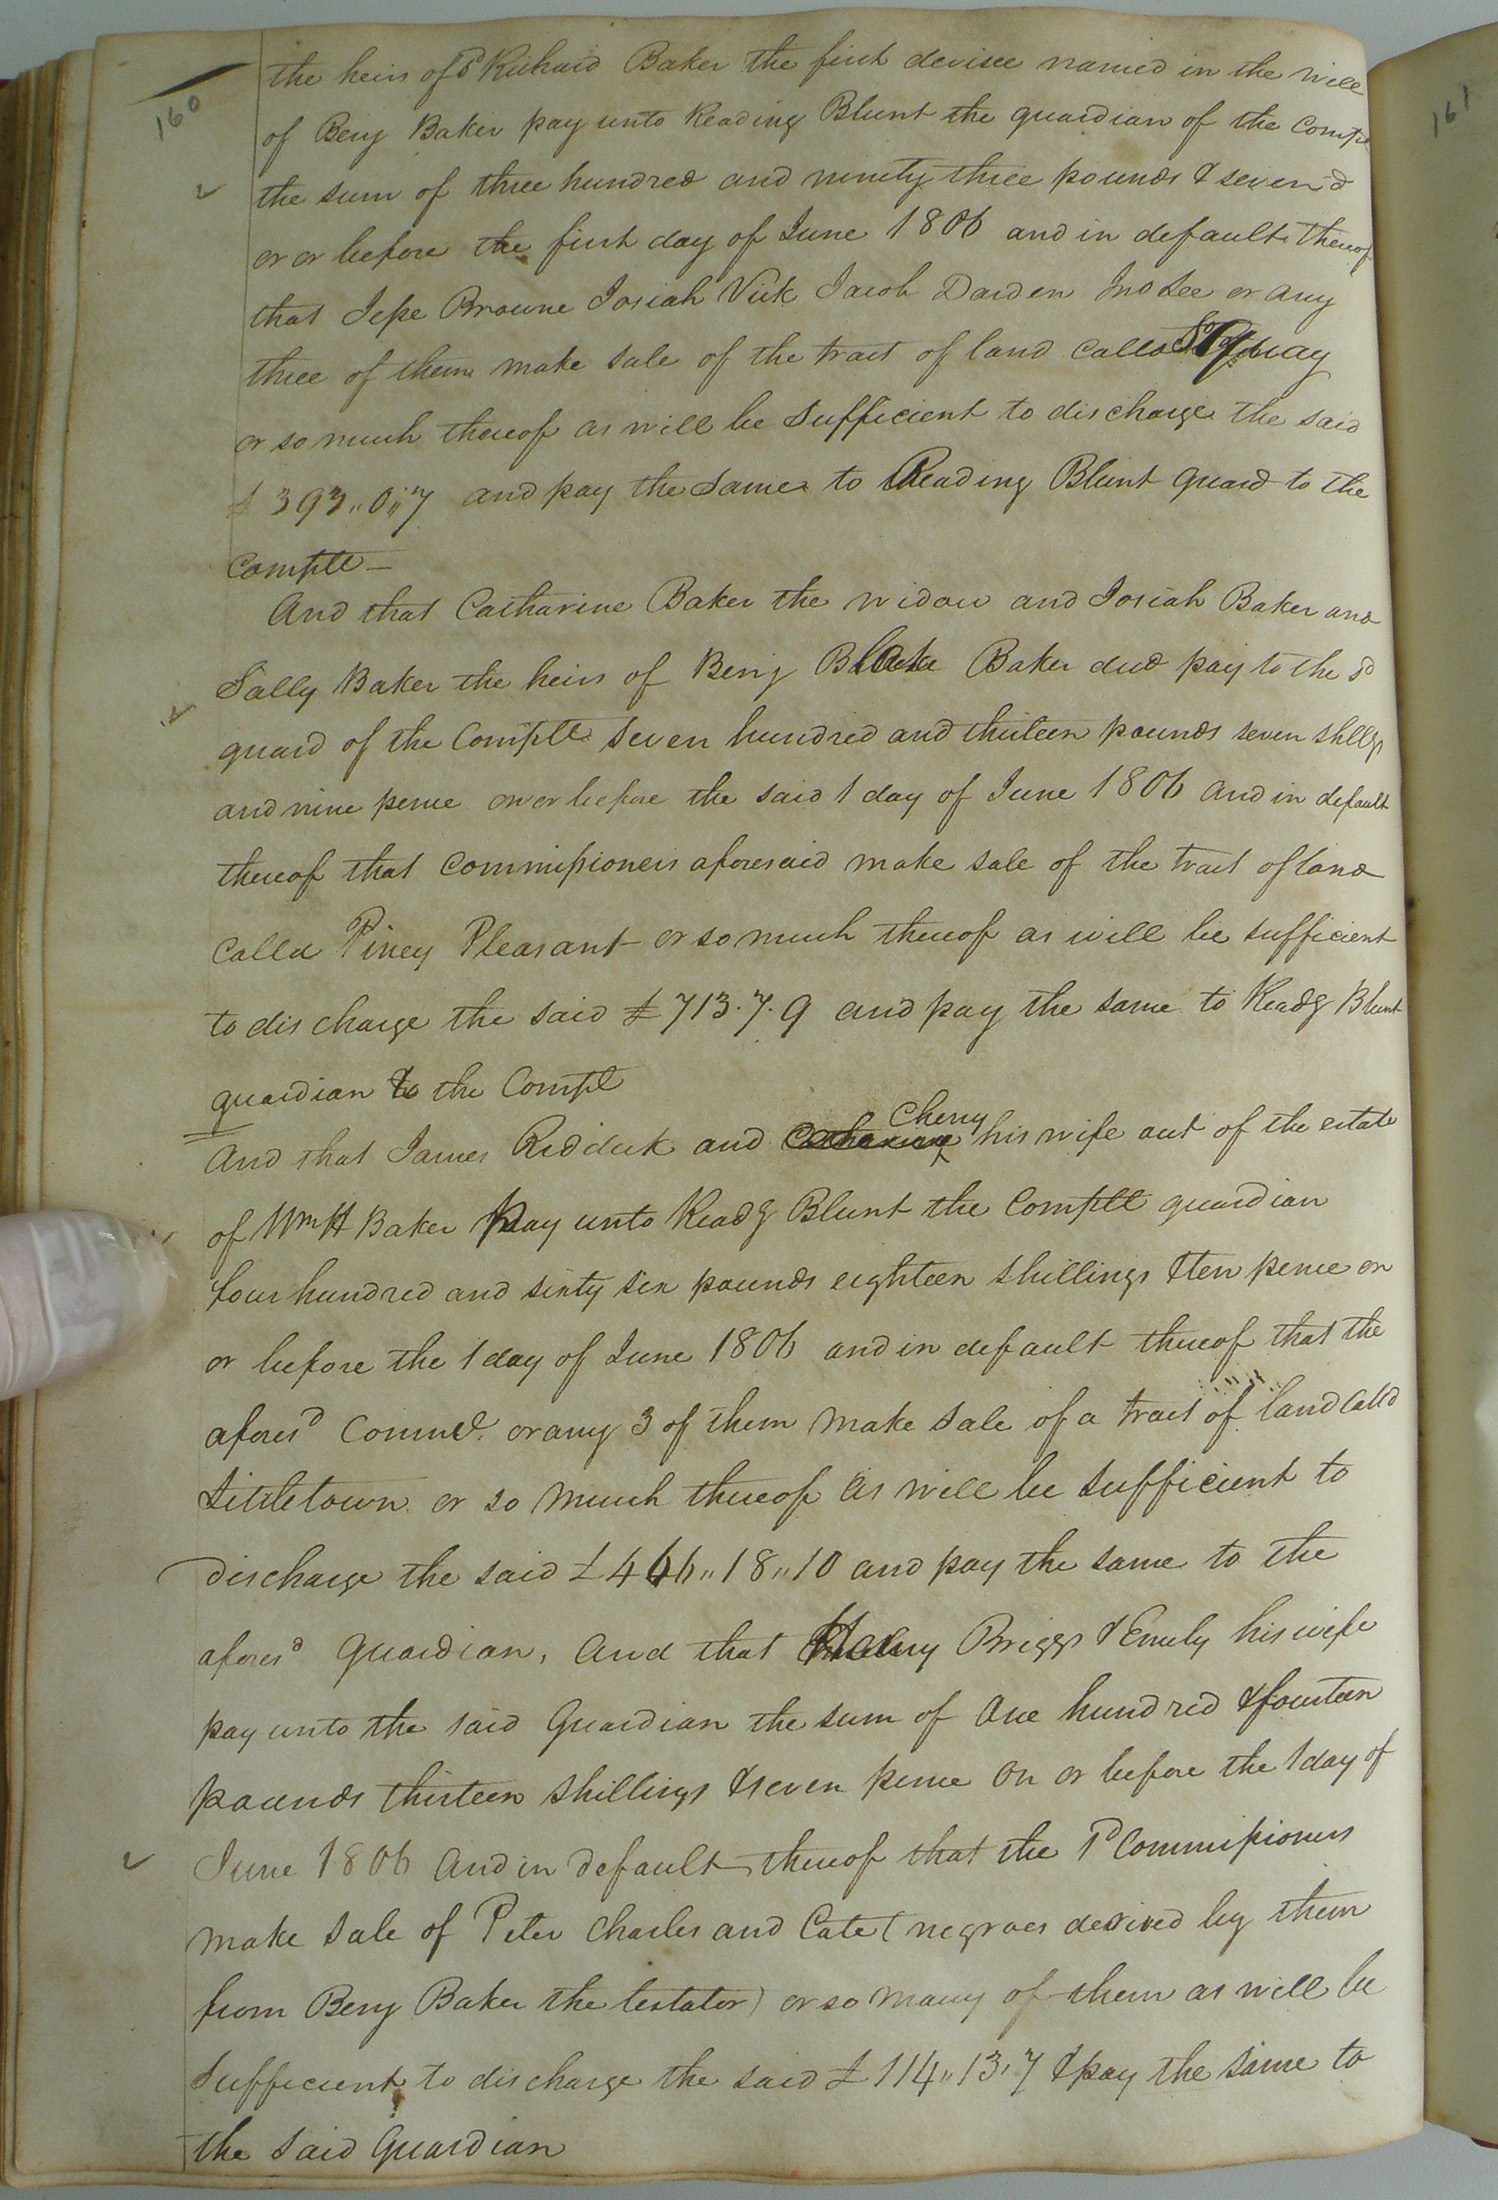 160
161
the heirs of sd Richard Baker the first devisee named in the will
of Benj Baker pay unto Reading Blunt the guardian of the Complt
the sum of three hundred and ninety three pounds & seven d
or or before the first day of June 1806 and in default thereof
that Jesse Browne Josiah Vick Jacob Darden Jno Lee or any
three of them make sale of the tract of land calld
or so much thereof as will be sufficient to discharge the said
£ 393,,0,,7 and pay the same to Reading Blunt guard to the
Complt —
And that Catharine Baker the widow and Josiah Baker and
Sally Baker the heirs of Benj Blake Baker decd pay to the sd
guard of the Complt seven hundred and thirteen pounds seven shllgs
and nine pence on or before the said 1 day of June 1806 and in default
thereof that Commissioners aforesaid make sale of the tract of land
Calld Piney Pleasant or so much thereof as will be sufficient
to discharge the said £713.7.9 and pay the same to Readg Blunt
guardian to the Complt
And that James Riddick and Catharine Cherry his wife out of the estate
of Wm H Baker pay unto Readg Blunt the Complt guardian
four hundred and sixty six pounds eighteen shillings & ten pence on
or before the 1 day of June 1806 and in default thereof that the
aforesd Commrs. or any 3 of them make sale of a tract of land calld
Littletown or so much thereof as will be sufficient to
discharge the said £466,,18,,10 and pay the same to the
aforesd guardian, And that Henry Briggs & Emily his wife
pay unto the said Guardian the sum of One hundred & fourteen
pounds thirteen shillings & seven pence On or before the 1 day of
June 1806 And in default thereof that the sd Commissioners
make sale of Peter Charles and Cate (negroes derived by them
from Benj Baker the testator) or so many of them as will be
sufficient to discharge the said £114,,13,7 & pay the same to
the said Guardian